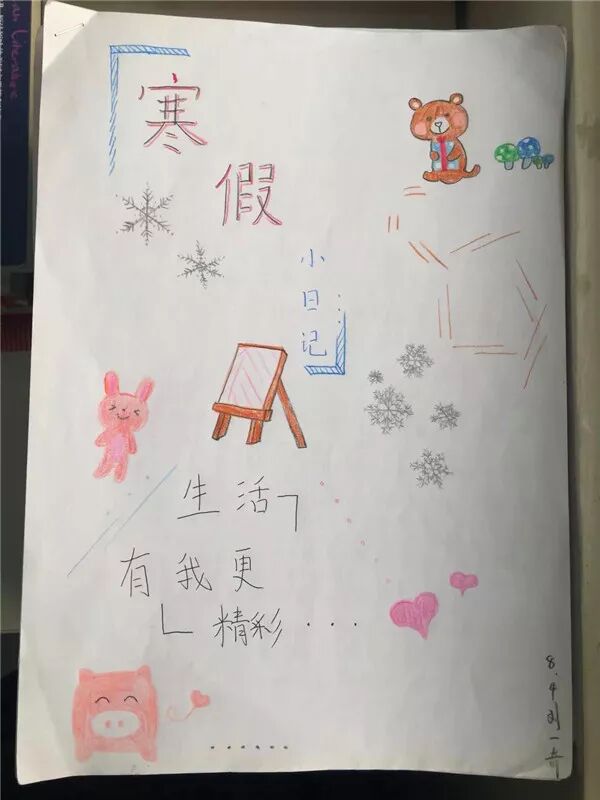 寒
假
小日记
生活
有我更
精彩...
8.4刘一奇
an Literature